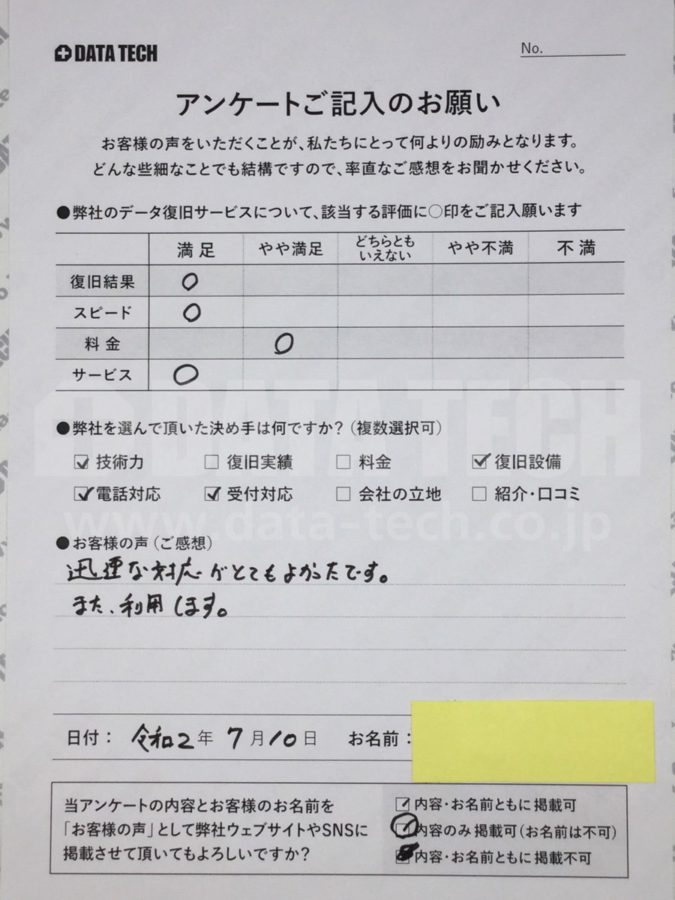 DATA TECH
No.
アンケートご記入のお願い
お客様の声をいただくことが、私たちにとって何よりの励みとなります。
どんな些細なことでも結構ですので、率直なご感想をお聞かせください。
●弊社のデータ復旧サービスについて、該当する評価に○印をご記入願います
満足 やや満足 どちらとも いえない やや不満 不満
復旧結果 ○
スピード ○
料金 ○
サービス ○
DATA TECH
●弊社を選んで頂いた決め手は何ですか？（複数選択可）
☑ 技術力 □ 復旧実績 □ 料金 ☑ 復旧設備
☑ 電話対応 ☑ 受付対応 □ 会社の立地 □ 紹介・口コミ
www.data-tech.co.jp
●お客様の声（ご感想）
迅速な対応がとてもよかったです。
また、利用します。
日付： 令和2年 7月10日 お名前：
当アンケートの内容とお客様のお名前を
「お客様の声」として弊社ウェブサイトやSNSに
掲載させて頂いてもよろしいですか？
☑ 内容・お名前ともに掲載可
☑ 内容のみ掲載可（お名前は不可）
内容・お名前ともに掲載不可